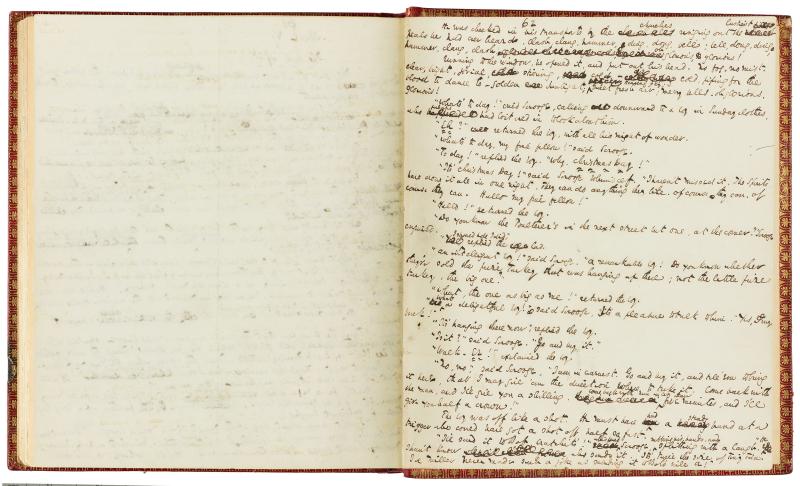 62
He was checked in his transports by the churches ringing out the lustiest
peals he had ever heard. Clash, clang, hammer, ding, dong, bell; bell, dong, ding,
hammer, clang, clash glorious, glorious!
Running to the window, he opened it, and put out his head. No fog, no mist;
clear, bright, jovial, stirring, cold cold, piping for the
blood to dance to. Golden sunlight; sweet fresh air; merry bells. Oh, glorious.
Glorious!
"What's to day?" cried Scrooge, calling downward to a boy in Sunday clothes,
who had loitered in to look about him.
"Eh?" returned the boy, with all his might of wonder.
"What's to day, my fine fellow?" said Scrooge.
"To day!" replied the boy. "Why, Christmas Day!"
"It's Christmas Day!" said Scrooge to himself. "I haven't missed it. The Spirits
have done it all in one night. They can do anything they like. Of course they can. Of
course they can. Hallo my fine fellow!"
"Hallo!" returned the boy.
"Do you know the Poulterer's in the next street but one, at the corner?" Scrooge
enquired.
"I should hope I did," replied the lad.
"An intelligent boy!" said Scrooge. "A remarkable boy! Do you know whether
they've sold the prize Turkey that was hanging up there; not the little prize
Turkey, the big one?"
"What, the one as big as me!" returned the boy.
"What a delightful boy!" said Scrooge. It's a pleasure to talk to him. "Yes, my
buck!"
"It's hanging there now," replied the boy.
"Is it?" said Scrooge. "Go and buy it."
"Walk-ER!" exclaimed the boy.
"No, no," said Scrooge. "I am in earnest. Go and buy it, and tell 'em to bring
it here, that I may give them the direction where to take it. Come back with
the man, and I'll give you a shilling. Come back with him in less than five minutes, and I'll
give you half a crown!"
The boy was off like a shot. He must have had a steady hand at a
trigger who could have got a shot off half so fast.
"I'll send it to Bob Cratchit's!" Scrooge, rubbing his hands, and splitting with a laugh. "He
shan't know who sends it. It's twice the size of Tiny Tim.
Joe Miller never made such a joke as sending it to Bob's will be!"